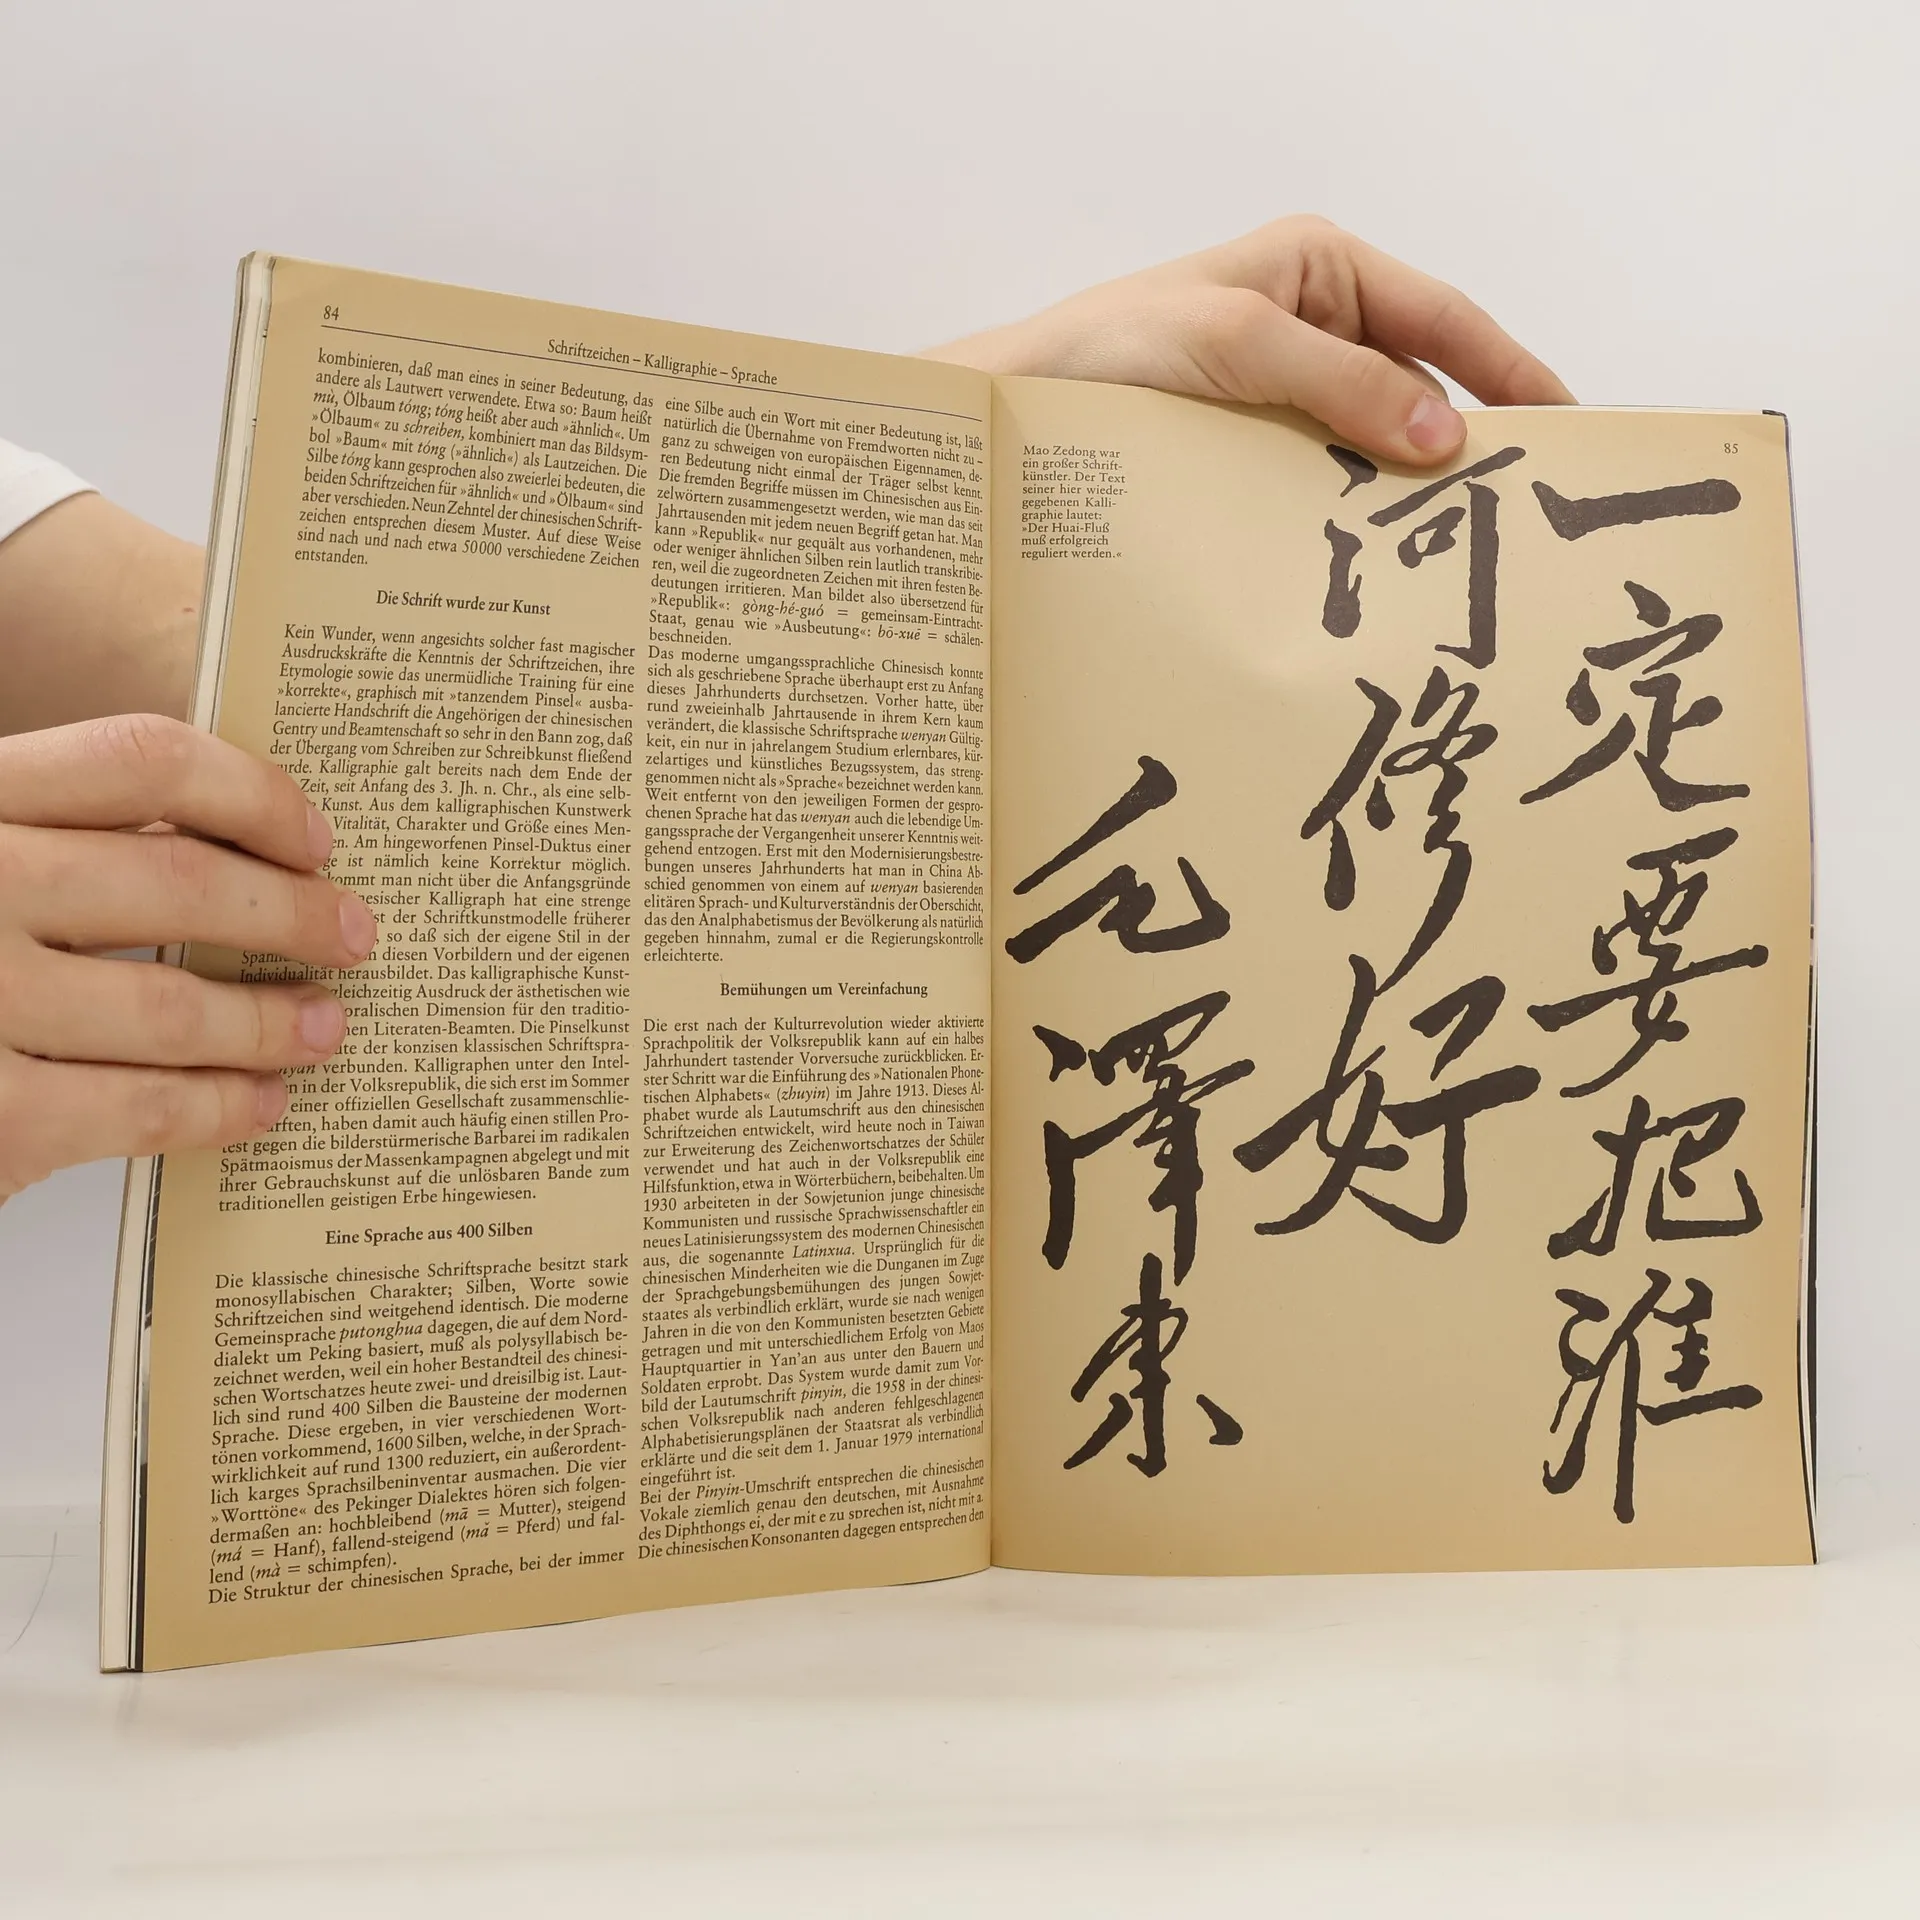 84
Schriftzeichen – Kalligraphie – Sprache
kombinieren, daß man eines in seiner Bedeutung, das
andere als Lautwert verwendete. Etwa so: Baum heißt
mù, Ölbaum tóng; tóng heißt aber auch »ähnlich«. Um
»Ölbaum« zu schreiben, kombiniert man das Bildsym-
bol »Baum« mit tóng (»ähnlich«) als Lautzeichen. Die
Silbe tóng kann gesprochen also zweierlei bedeuten, die
beiden Schriftzeichen für »ähnlich« und »Ölbaum« sind
aber verschieden. Neun Zehntel der chinesischen Schrift-
zeichen entsprechen diesem Muster. Auf diese Weise
sind nach und nach etwa 50000 verschiedene Zeichen
entstanden.
Die Schrift wurde zur Kunst
Kein Wunder, wenn angesichts solcher fast magischer
Ausdruckskräfte die Kenntnis der Schriftzeichen, ihre
Etymologie sowie das unermüdliche Training für eine
»korrekte«, graphisch mit »tanzendem Pinsel« ausba-
lancierte Handschrift die Angehörigen der chinesischen
Gentry und Beamtenschaft so sehr in den Bann zog, daß
der Übergang vom Schreiben zur Schreibkunst fließend
urde. Kalligraphie galt bereits nach dem Ende der
Zeit, seit Anfang des 3. Jh. n. Chr., als eine selb-
Kunst. Aus dem kalligraphischen Kunstwerk
Vitalität, Charakter und Größe eines Men-
en. Am hingeworfenen Pinsel-Duktus einer
ge ist nämlich keine Korrektur möglich.
kommt man nicht über die Anfangsgründe
nesischer Kalligraph hat eine strenge
ist der Schriftkunstmodelle früherer
, so daß sich der eigene Stil in der
Spann n diesen Vorbildern und der eigenen
Individualität herausbildet. Das kalligraphische Kunst-
gleichzeitig Ausdruck der ästhetischen wie
oralischen Dimension für den traditio-
nen Literaten-Beamten. Die Pinselkunst
ute der konzisen klassischen Schriftspra-
nyan verbunden. Kalligraphen unter den Intel-
n in der Volksrepublik, die sich erst im Sommer
einer offiziellen Gesellschaft zusammenschlie-
urften, haben damit auch häufig einen stillen Pro-
test gegen die bilderstürmerische Barbarei im radikalen
Spätmaoismus der Massenkampagnen abgelegt und mit
ihrer Gebrauchskunst auf die unlösbaren Bande zum
traditionellen geistigen Erbe hingewiesen.
Eine Sprache aus 400 Silben
Die klassische chinesische Schriftsprache besitzt stark
monosyllabischen Charakter; Silben, Worte sowie
Schriftzeichen sind weitgehend identisch. Die moderne
Gemeinsprache putonghua dagegen, die auf dem Nord-
dialekt um Peking basiert, muß als polysyllabisch be-
zeichnet werden, weil ein hoher Bestandteil des chinesi-
schen Wortschatzes heute zwei- und dreisilbig ist. Laut-
lich sind rund 400 Silben die Bausteine der modernen
Sprache. Diese ergeben, in vier verschiedenen Wort-
tönen vorkommend, 1600 Silben, welche, in der Sprach-
wirklichkeit auf rund 1300 reduziert, ein außerordent-
lich karges Sprachsilbeninventar ausmachen. Die vier
»Worttöne« des Pekinger Dialektes hören sich folgen-
dermaßen an: hochbleibend (mā = Mutter), steigend
(má = Hanf), fallend-steigend (mǎ = Pferd) und fal-
lend (mà = schimpfen).
Die Struktur der chinesischen Sprache, bei der immer
eine Silbe auch ein Wort mit einer Bedeutung ist, läßt
natürlich die Übernahme von Fremdworten nicht zu –
ganz zu schweigen von europäischen Eigennamen, de-
ren Bedeutung nicht einmal der Träger selbst kennt.
Die fremden Begriffe müssen im Chinesischen aus Ein-
zelwörtern zusammengesetzt werden, wie man das seit
Jahrtausenden mit jedem neuen Begriff getan hat. Man
kann »Republik« nur gequält aus vorhandenen, mehr
oder weniger ähnlichen Silben rein lautlich transkribie-
ren, weil die zugeordneten Zeichen mit ihren festen Be-
deutungen irritieren. Man bildet also übersetzend für
»Republik«: gòng-hé-guó = gemeinsam-Eintracht-
Staat, genau wie »Ausbeutung«: bō-xuē = schälen-
beschneiden.
Das moderne umgangssprachliche Chinesisch konnte
sich als geschriebene Sprache überhaupt erst zu Anfang
dieses Jahrhunderts durchsetzen. Vorher hatte, über
rund zweieinhalb Jahrtausende in ihrem Kern kaum
verändert, die klassische Schriftsprache wenyan Gültig-
keit, ein nur in jahrelangem Studium erlernbares, kür-
zelartiges und künstliches Bezugssystem, das streng-
genommen nicht als »Sprache« bezeichnet werden kann.
Weit entfernt von den jeweiligen Formen der gespro-
chenen Sprache hat das wenyan auch die lebendige Um-
gangssprache der Vergangenheit unserer Kenntnis weit-
gehend entzogen. Erst mit den Modernisierungsbestre-
bungen unseres Jahrhunderts hat man in China Ab-
schied genommen von einem auf wenyan basierenden
elitären Sprach- und Kulturverständnis der Oberschicht,
das den Analphabetismus der Bevölkerung als natürlich
gegeben hinnahm, zumal er die Regierungskontrolle
erleichterte.
Bemühungen um Vereinfachung
Die erst nach der Kulturrevolution wieder aktivierte
Sprachpolitik der Volksrepublik kann auf ein halbes
Jahrhundert tastender Vorversuche zurückblicken. Er-
ster Schritt war die Einführung des »Nationalen Phone-
tischen Alphabets« (zhuyin) im Jahre 1913. Dieses Al-
phabet wurde als Lautumschrift aus den chinesischen
Schriftzeichen entwickelt, wird heute noch in Taiwan
zur Erweiterung des Zeichenwortschatzes der Schüler
verwendet und hat auch in der Volksrepublik eine
Hilfsfunktion, etwa in Wörterbüchern, beibehalten. Um
1930 arbeiteten in der Sowjetunion junge chinesische
Kommunisten und russische Sprachwissenschaftler ein
neues Latinisierungssystem des modernen Chinesischen
aus, die sogenannte Latinxua. Ursprünglich für die
chinesischen Minderheiten wie die Dunganen im Zuge
der Sprachgebungsbemühungen des jungen Sowjet-
staates als verbindlich erklärt, wurde sie nach wenigen
Jahren in die von den Kommunisten besetzten Gebiete
getragen und mit unterschiedlichem Erfolg von Maos
Hauptquartier in Yan'an aus unter den Bauern und
Soldaten erprobt. Das System wurde damit zum Vor-
bild der Lautumschrift pinyin, die 1958 in der chinesi-
schen Volksrepublik nach anderen fehlgeschlagenen
Alphabetisierungsplänen der Staatsrat als verbindlich
erklärte und die seit dem 1. Januar 1979 international
eingeführt ist.
Bei der Pinyin-Umschrift entsprechen die chinesischen
Vokale ziemlich genau den deutschen, mit Ausnahme
des Diphthongs ei, der mit e zu sprechen ist, nicht mit a.
Die chinesischen Konsonanten dagegen entsprechen den
85
Mao Zedong war
ein großer Schrift-
künstler. Der Text
seiner hier wieder-
gegebenen Kalli-
graphie lautet:
»Der Huai-Fluß
muß erfolgreich
reguliert werden.«
一定要把淮
河修好
毛澤東